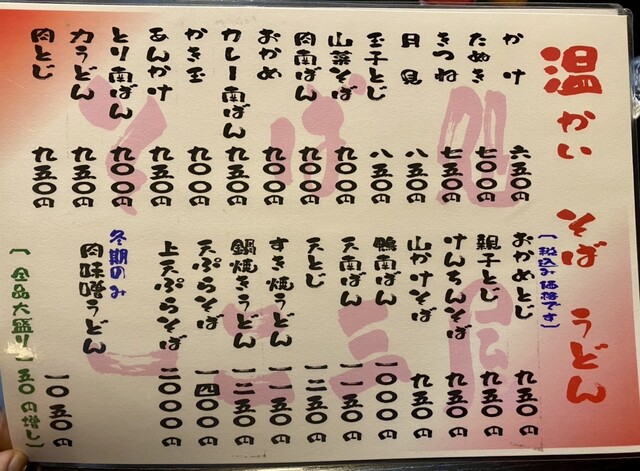 温かい そば うどん
かけ 六五〇円
たぬき 七〇〇円
きつね 七五〇円
月見 八五〇円
玉子とじ 八五〇円
山菜そば 九〇〇円
肉南ばん 九〇〇円
おかめ 九〇〇円
カレー南ばん 九五〇円
かき玉 九〇〇円
あんかけ 九五〇円
とり南ばん 九〇〇円
力うどん 九五〇円
肉とじ 九五〇円
(税込み価格です)
おかめとじ 九五〇円
親子とじ 九五〇円
けんちんそば 九五〇円
山かけそば 九五〇円
鴨南ばん 一〇〇〇円
天南ばん 一一五〇円
天とじ 一二五〇円
すき焼うどん 一一五〇円
鍋焼きうどん 一二五〇円
天ぷらそば 一四〇〇円
上天ぷらそば 二〇〇〇円
冬期のみ
肉味噌うどん 一〇五〇円
(全品大盛り 五〇円増し)
そば処